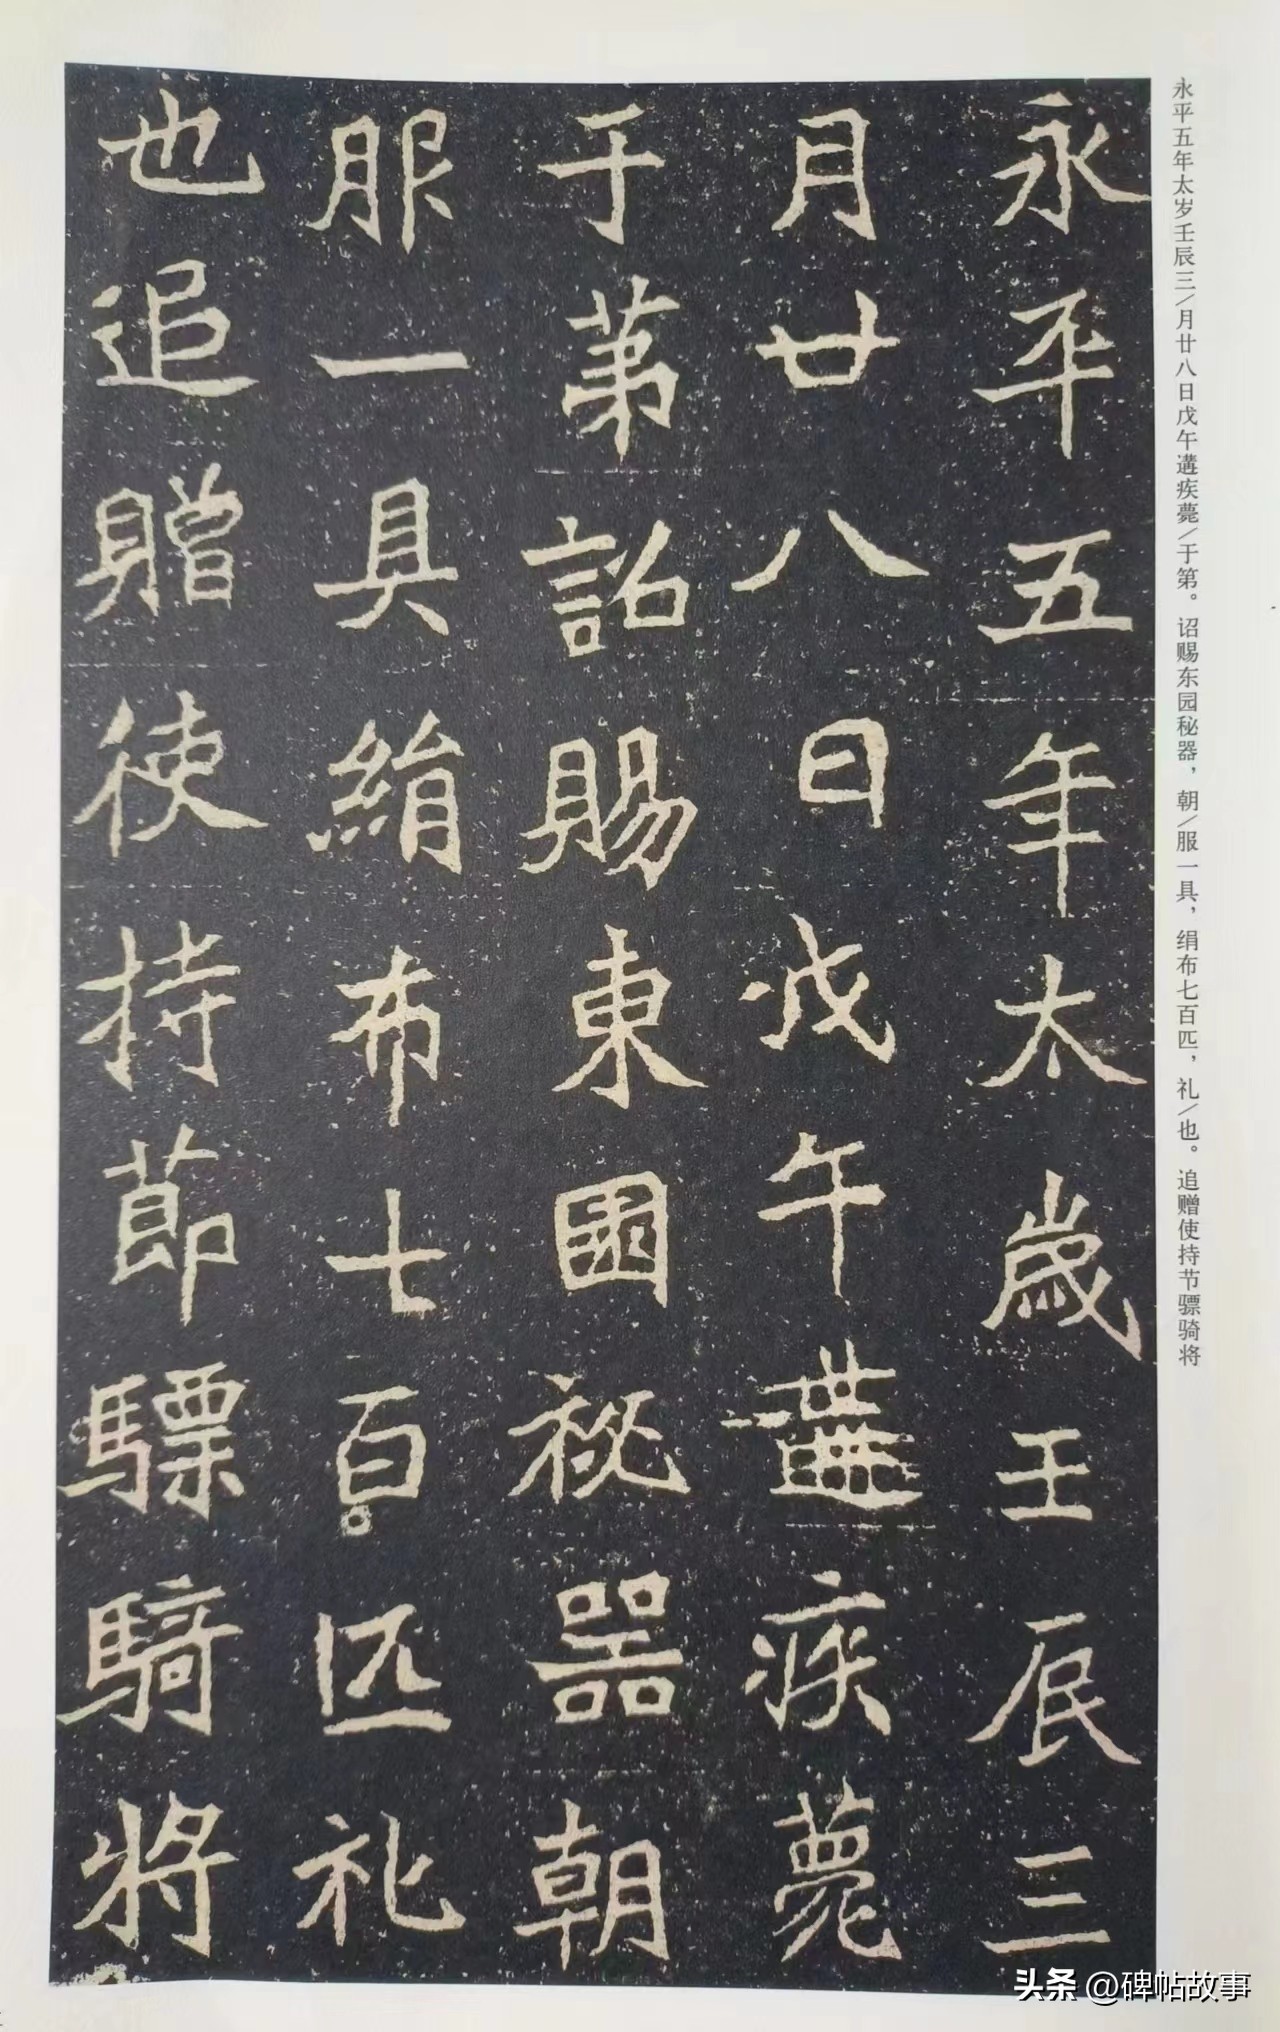 永平五年太歲壬辰三
月廿八日戊午遘疾薨
于苐詔賜東園祕器朝
服一具絹布七百匹礼
也追贈使持節驃騎將
永平五年太岁壬辰三/月廿八日戊午遘疾薨/于第。诏赐东园秘器，朝/服一具，绢布七百匹，礼/也。追赠使持节骠骑将
头条 @碑帖故事